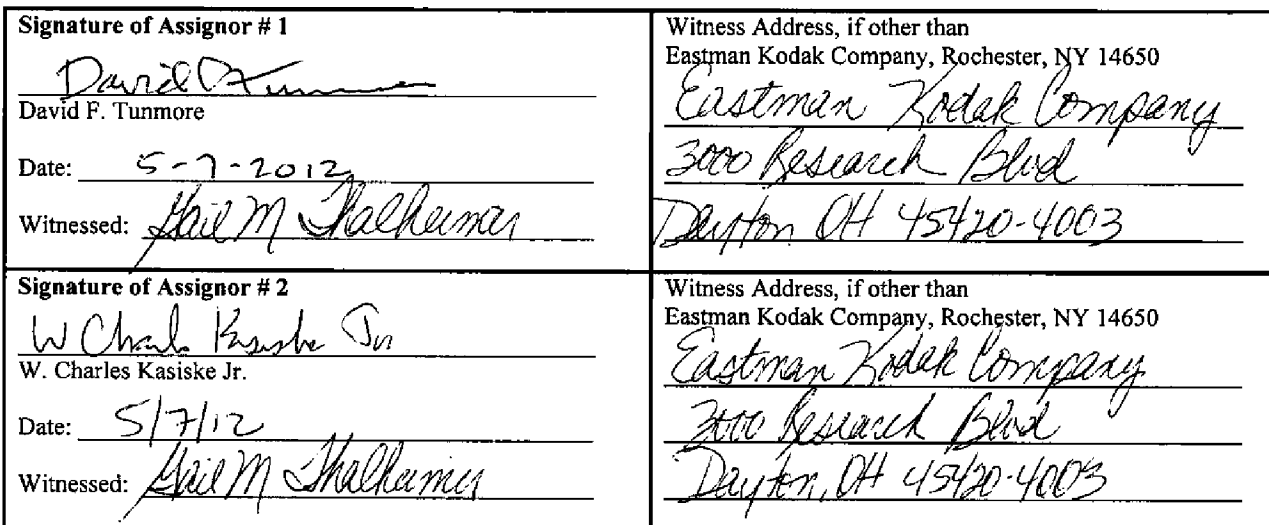 Signature of Assignor # 1
David F Tunmore
David F. Tunmore
Date: 5-7-2012
Witnessed: Gail M Thalheimer
Witness Address, if other than
Eastman Kodak Company, Rochester, NY 14650
Eastman Kodak Company
3000 Research Blvd
Dayton OH 45420-4003
Signature of Assignor # 2
W Charles Kasiske Jr
W. Charles Kasiske Jr.
Date: 5/7/12
Witnessed: Gail M Thalheimer
Witness Address, if other than
Eastman Kodak Company, Rochester, NY 14650
Eastman Kodak Company
3000 Research Blvd
Dayton, OH 45420-4003